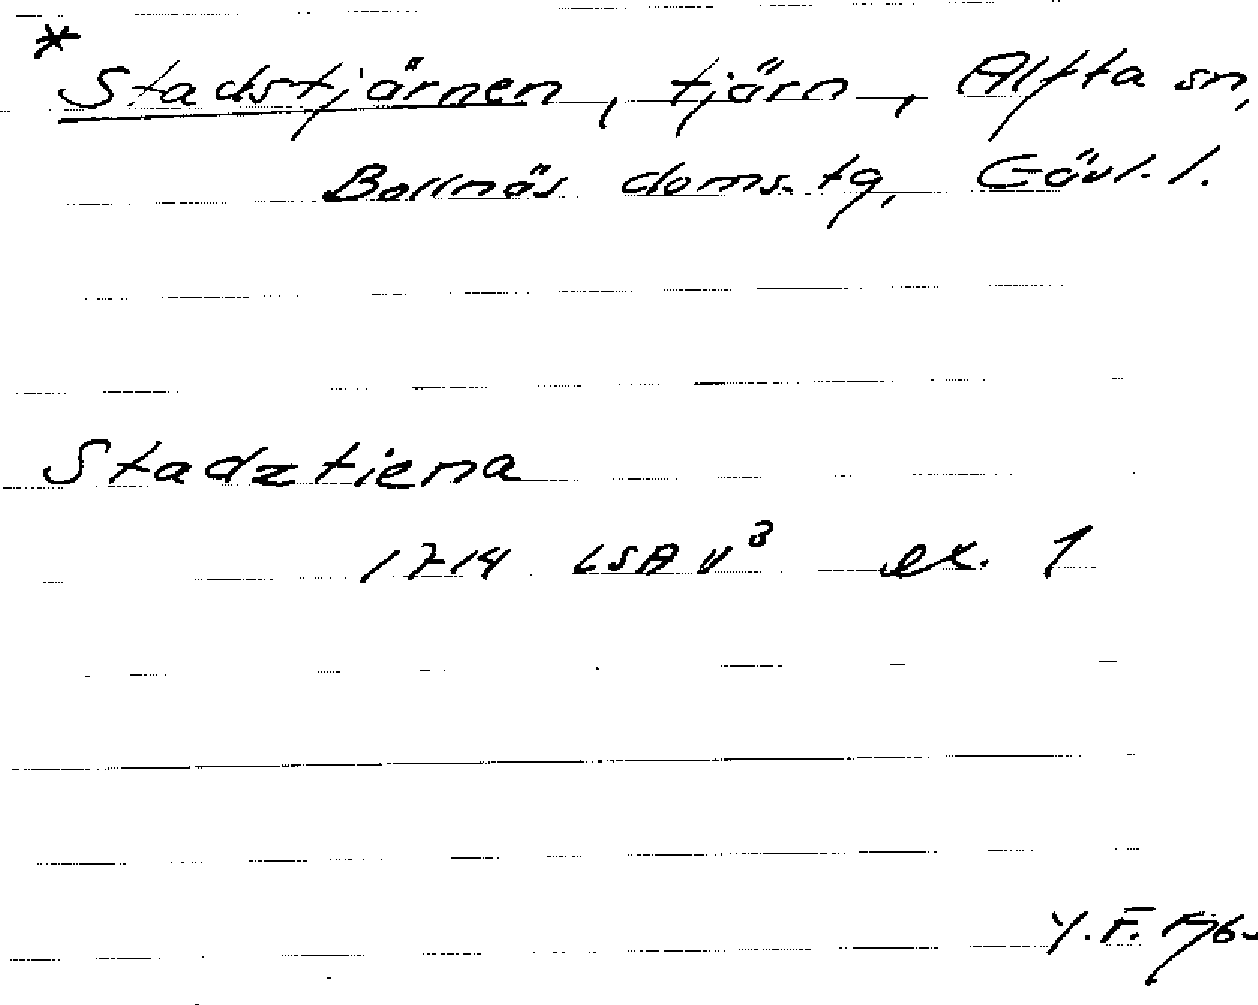 * Stadstjärnen, tjärn, Alfta sn,
Bollnäs doms.tg, Gävl. l.
Stadztierna
1714 LSA V³ ex. 1
Y.F.